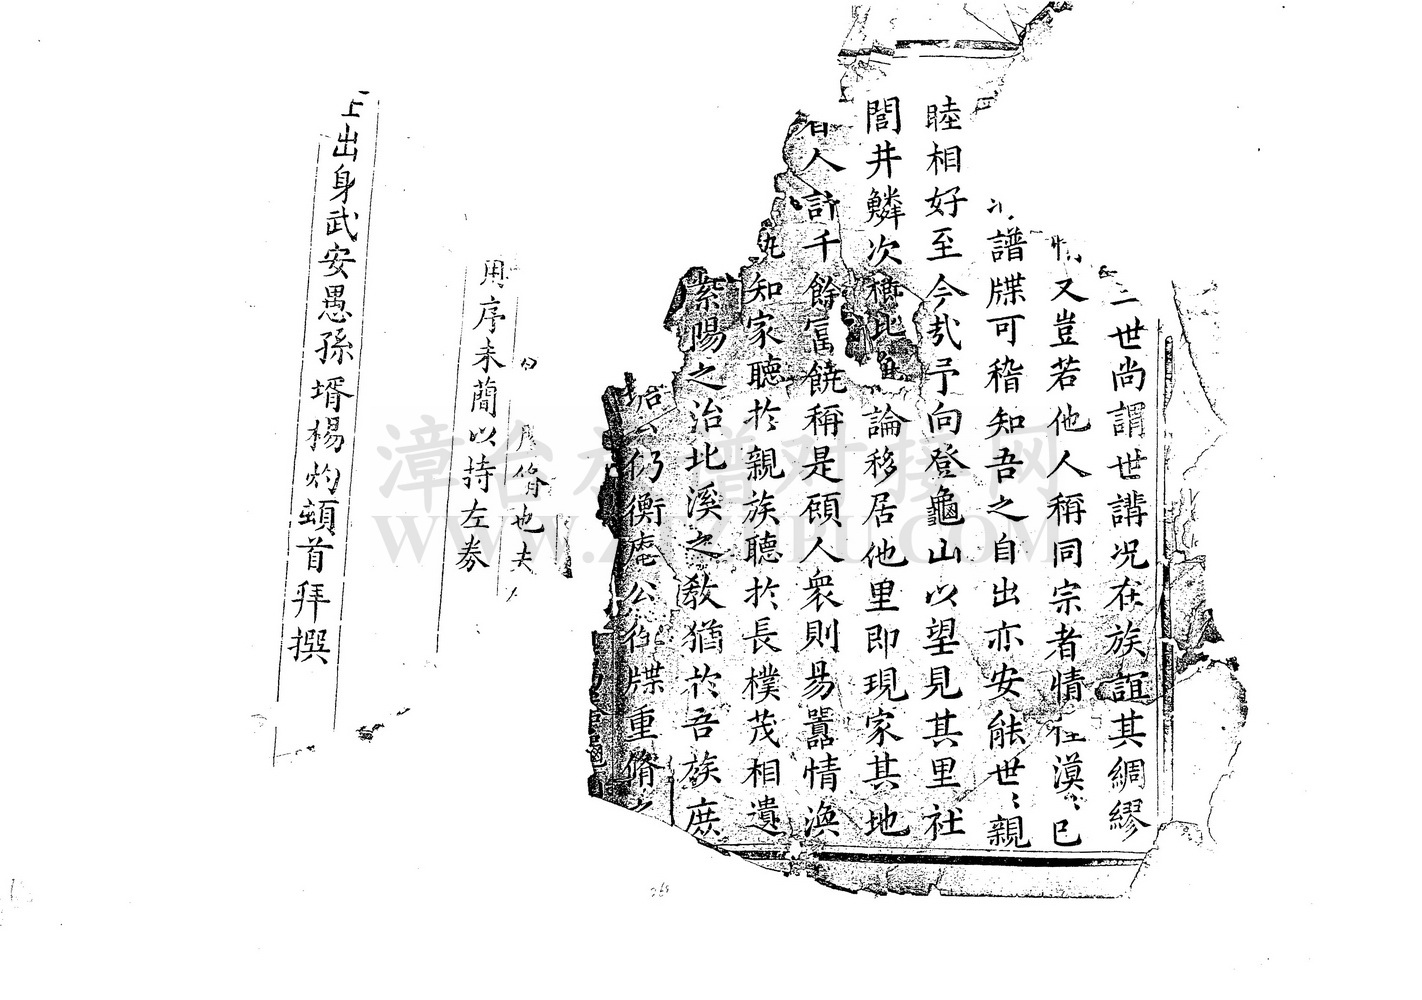 二世尚謂世講况在族誼其綢繆
情又豈若他人稱同宗者情在漠〻已
譜牒可稽知吾之自出亦安能世〻親
睦相好至今㢤予向登龜山以望見其里社
閭井鱗次櫛比無論移居他里即現家其地
者人計千餘冨饒稱是頋人衆則昜囂情渙
知家聽扵親族聽扵長樸茂相遺
紫陽之治北溪之教猶扵吾族庶
公仍衡菴公徃牒重脩之
脩也夫
用序末簡以持左券
出身武安愚孫壻楊灼頓首拜撰
漳台族谱对接网
WWW.ZTZUPU.COM